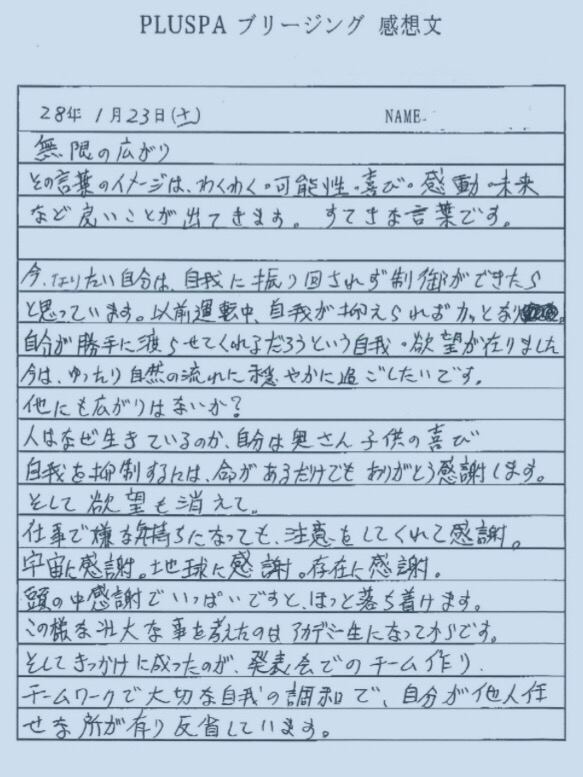 PLUSPA ブリージング 感想文
28年 1月23日(土) NAME
無限の広がり
その言葉のイメージは、わくわく・可能性・喜び・感動・未来
など良いことが出てきます。 すてきな言葉です。
今、なりたい自分は、自我に振り回されず制御ができたら
と思っています。以前運転中、自我が抑えられればカッとなり
自分が勝手に渡らせてくれるだろうという自我・欲望が在りました
今は、ゆったり自然の流れに穏やかに過ごしたいです。
他にも広がりはないか?
人はなぜ生きているのか、自分は奥さん子供の喜び
自我を抑制するには、命があるだけでもありがとう感謝します。
そして欲望も消えて。
仕事で様な気持ちになっても、注意をしてくれて感謝。
宇宙に感謝。地球に感謝。存在に感謝。
頭の中感謝でいっぱいですと、ほっと落ち着けます。
この様な壮大な事を考えたのはアカデミー生になってからです。
そしてきっかけに成ったのが、発表会でのチーム作り、
チームワークで大切な自我の調和で、自分が他人任
せな所が有り反省しています。